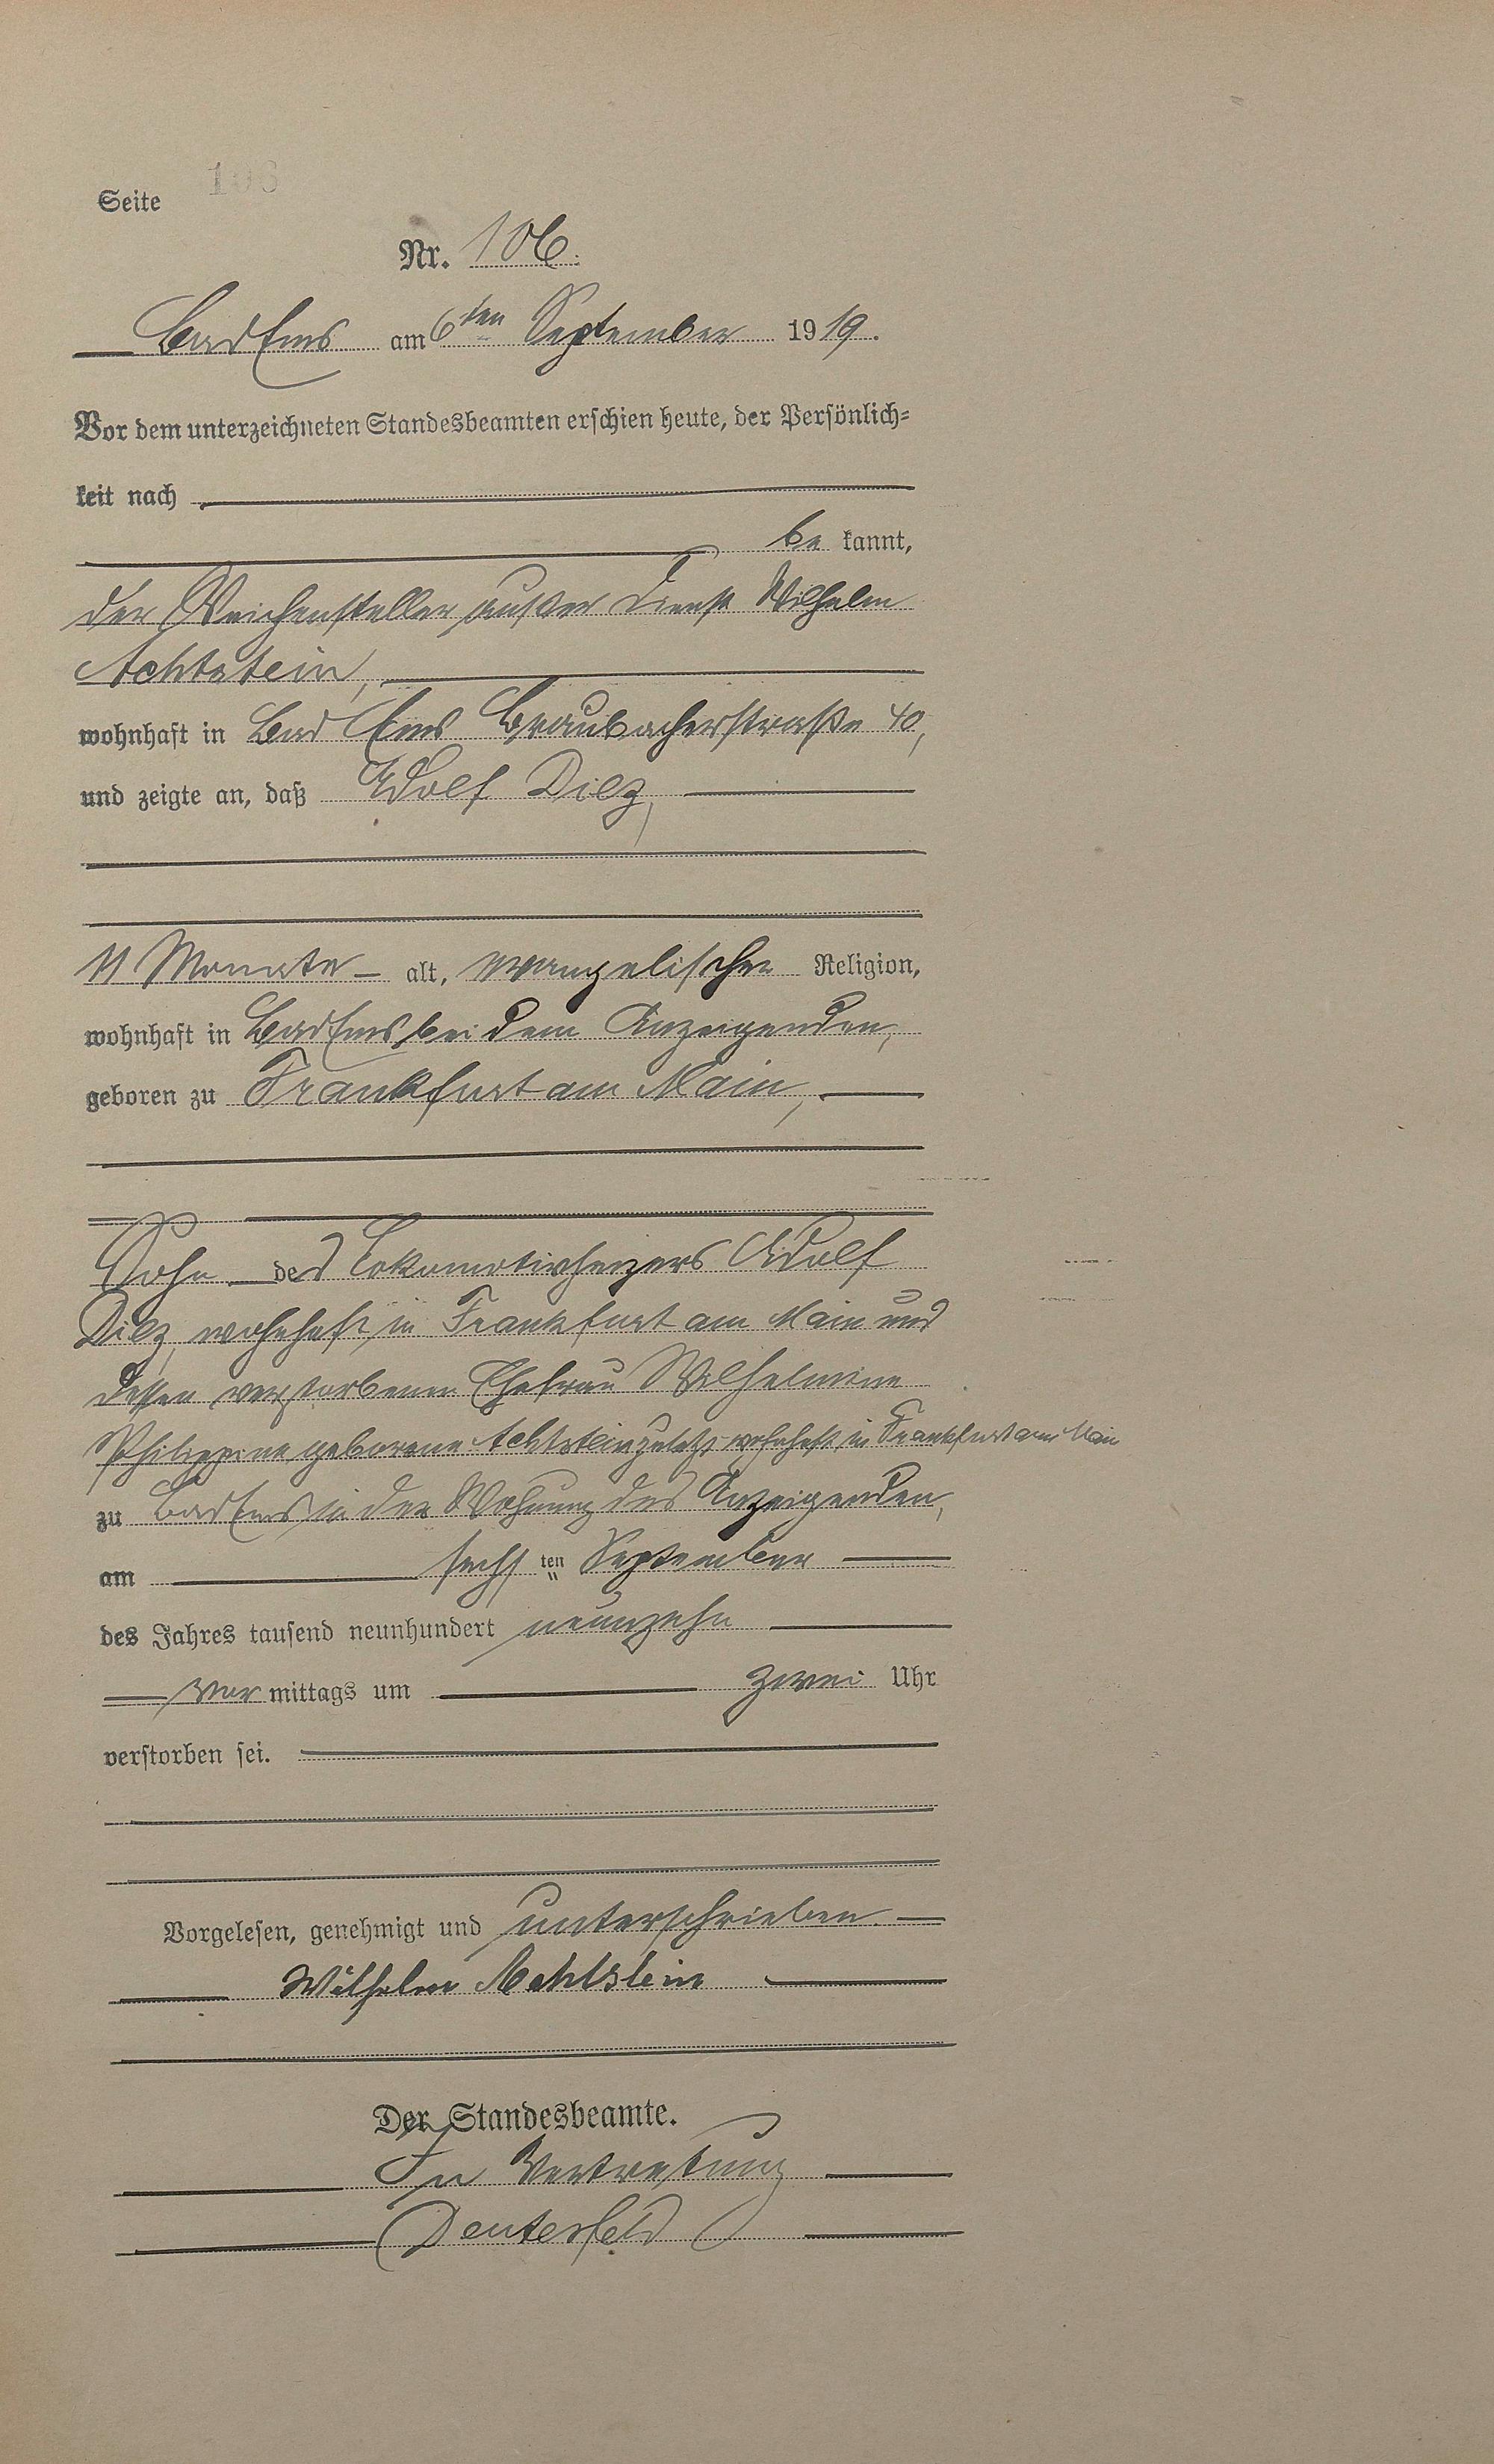 Seite 106
Nr. 106.
Bad Ems am 6ten September 1919.
Vor dem unterzeichneten Standesbeamten erschien heute, der Persönlich-
keit nach
be kannt,
der Weichensteller außer Dienst Wilhelm
Achtstein,
wohnhaft in Bad Ems Braubacherstraße 40,
und zeigte an, daß Adolf Dilz,
11 Monate alt, evangelischer Religion,
wohnhaft in Bad Ems, bei dem Anzeigenden,
geboren zu Frankfurt am Main,
Sohn des Lokomotivheizers Adolf
Dilz, wohnhaft in Frankfurt am Main und
dessen verstorbenen Ehefrau Wilhelmine
Philippine geborene Achtstein zuletzt wohnhaft in Frankfurt am Main
zu Bad Ems in der Wohnung des Anzeigenden,
am sechsten September
des Jahres tausend neunhundert neunzehn
vor mittags um zwei Uhr
verstorben sei.
Vorgelesen, genehmigt und unterschrieben.
Wilhelm Achtstein
Der Standesbeamte.
In Vertretung